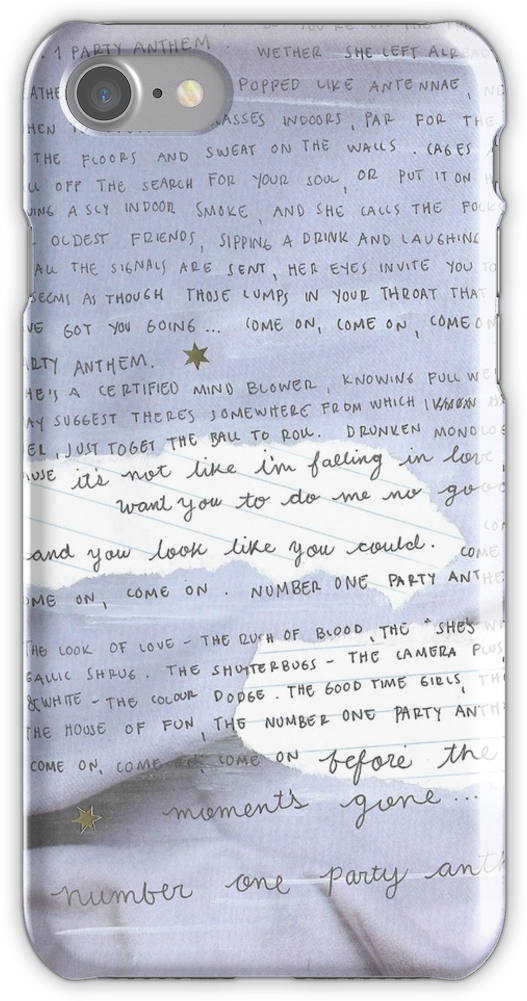 . 1 PARTY ANTHEM . WETHER SHE LEFT ALREAD
POPPED LIKE ANTENNAE,
INDOORS, PAR FOR THE
THE FLOORS AND SWEAT ON THE WALLS . CAGES
OFF THE SEARCH FOR YOUR SOUL, OR PUT IT ON
A SLY INDOOR SMOKE, AND SHE CALLS THE
OLDEST FRIENDS, SIPPING A DRINK AND LAUGHING
ALL THE SIGNALS ARE SENT, HER EYES INVITE YOU TO
SEEMS AS THOUGH THOSE LUMPS IN YOUR THROAT THAT
VE GOT YOU GOING ... COME ON, COME ON, COME ON
ARTY ANTHEM.
HE'S A CERTIFIED MIND BLOWER, KNOWING FULL WE
AY SUGGEST THERE'S SOMEWHERE FROM WHICH
ER, JUST TO GET THE BALL TO ROLL. DRUNKEN MONOLOG
AUSE it's not like i'm falling in love
want you to do me no goo
and you look like you could. COME
OME ON, COME ON . NUMBER ONE PARTY ANTHE
THE LOOK OF LOVE - THE RUSH OF BLOOD, THE "SHE'S W
GALLIC SHRUG. THE SHUTTERBUGS - THE CAMERA PLUS,
&WHITE - THE COLOUR DODGE. THE GOOD TIME GIRLS, TH
THE HOUSE OF FUN, THE NUMBER ONE PARTY ANTH
COME ON, COME ON, COME ON before the
moments gone...
number one party anth